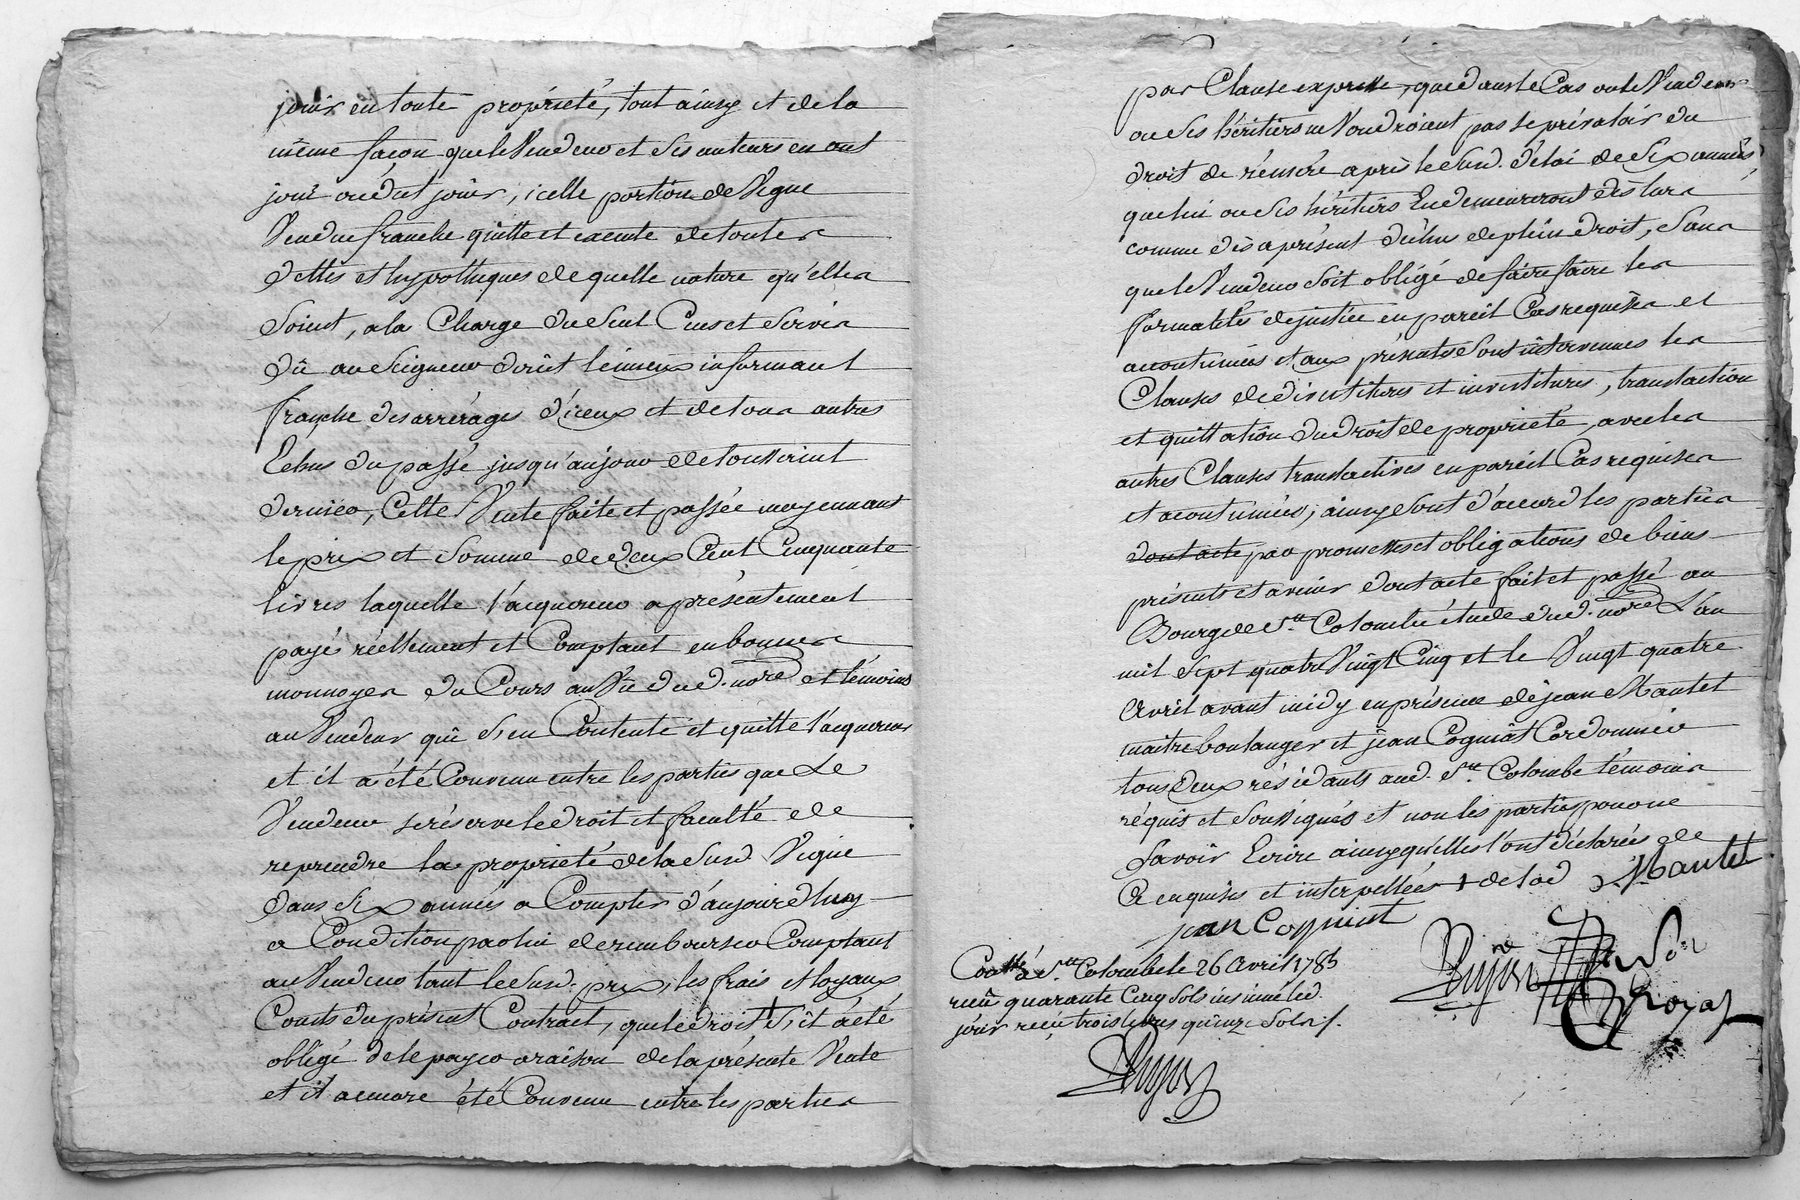 jouir en toute proprieté, tout ainsy et de la
même façon que le Vendeur et ses auteurs en ont
joui ou dut jouir, icelle portion de Vigne
Vendue franche quitte et exempte de toutes
dettes et hypotheques de quelle nature qu'elles
soient, a la Charge du seul Cens et servis
dû au Seigneur dont le
franche des arrérages d'iceux et de tous autres
Echus du passé jusqu'au jour de toussaint
dernier, Cette Vente faite et passée moyennant
le prix et somme de deux Cent Cinquante
livres laquelle l'acquereur a présentement
payé réellement et Comptant en bonnes
monnoyes du Cours au Vû dud. nore et témoins
au Vendeur qui s'en Contente et quitte l'acquereur
et il a été Convenu entre les parties que Le
Vendeur se réserve le droit et faculté de
reprendre la proprieté de la susd Vigne
dans six années a Compter d'aujourd'huy
a Condition par lui de rembourser Comptant
au Vendeur tant le susd. prix, les frais et loyaux
Couts du présent Contract, que le droit s'il a été
obligé de le payer a raison de la présente Vente
et il a encore été Convenu entre les parties
par Clause expresse, que dans le Cas ou le Vendeur
ou ses héritiers ne Voudroient pas se prévaloir du
droit de réméré après le susd. délai de six années,
que lui ou ses héritiers En demeureront dès lors
comme dès a présent déchus de plein droit, sans
que le Vendeur soit obligé de faire faire les
formalités de justice en pareil Cas requises et
acoutumées et aux présentes sont intervenues les
Clauses de divestitures et investitures, translaction
et quittation du droit de proprieté, avec les
autres Clauses translactives en pareil Cas requises
et acoutumées; ainsy sont d'acord les parties
dont acte par promesses et obligations de biens
présents et avenir dont acte fait et passé au
Bourg de Ste Colombe étude dud. nore L'an
mil sept quatre Vingt Cinq et le Vingt quatre
Avril avant midy en présence de jean Mantet
maitre boulanger et jean Cogniat Cordonnier
tous deux résidants aud. Ste Colombe témoins
réquis et soussignés et non les parties pour ne
savoir Ecrire ainsy qu'elles l'ont déclarées de
ce enquises et interpellées + de lod Mantet
jean Cogniat
Coollé à Ste Colombe le 26 Avril 1785
reçu quarante Cinq sols insinué led.
jour reçu trois livres quinze sols